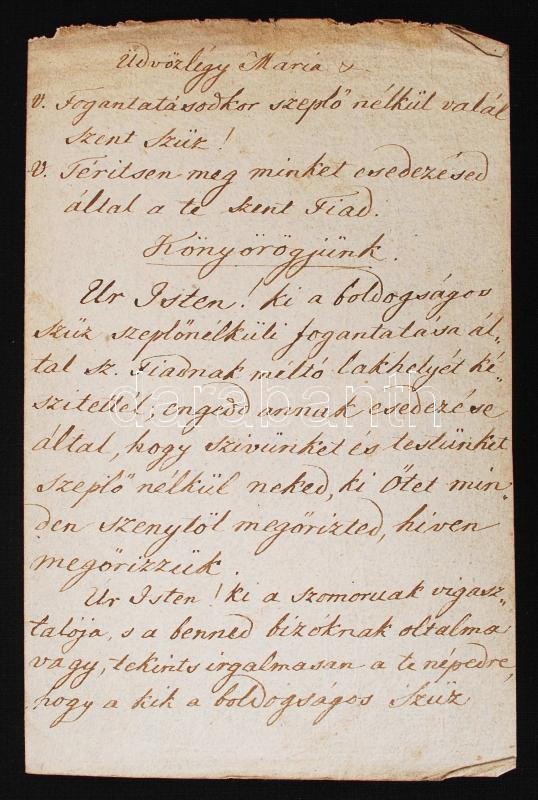 Üdvözlégy Mária
V. Fogantatásodkor szeplő nélkül valál
szent szűz!
V. Téritsen meg minket esedezésed
által a te szent Fiad.
Könyörögjünk.
Ur Isten! ki a boldogságos
szűz szeplőnélküli fogantatása ál-
tal sz. Fiadnak méltó lakhelyét ké-
szitettél, engedd annak esedezése
által, hogy szivünket és testünket
szeplő nélkül neked, ki Őtet min-
den szenytől megőrizted, hiven
megőrizzük.
Ur Isten! ki a szomoruak vigasz-
talója, s a benned bizóknak oltalma
vagy, tekints irgalmasan a te népedre,
hogy a kik a boldogságos Szűz
darabanth